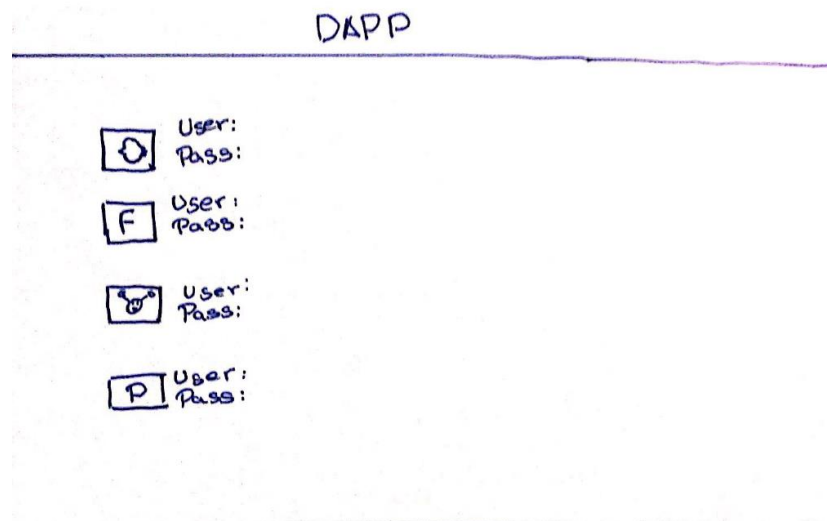 DAPP
User:
Pass:
F
User:
Pass:
User:
Pass:
P
User:
Pass: